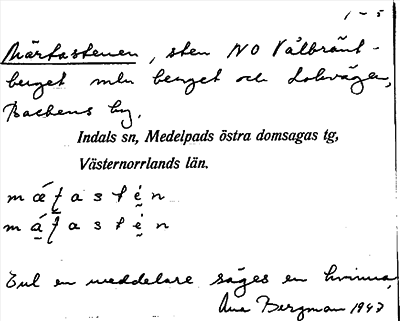 1-5
Märtastenen, sten NO Vålbränt-
berget mln berget och Lokvägen,
Backens by.
Indals sn, Medelpads östra domsagas tg,
Västernorrlands län.
m á ƭ a s t é n
Enl en meddelare säges en kvinna,
Bergman 1943